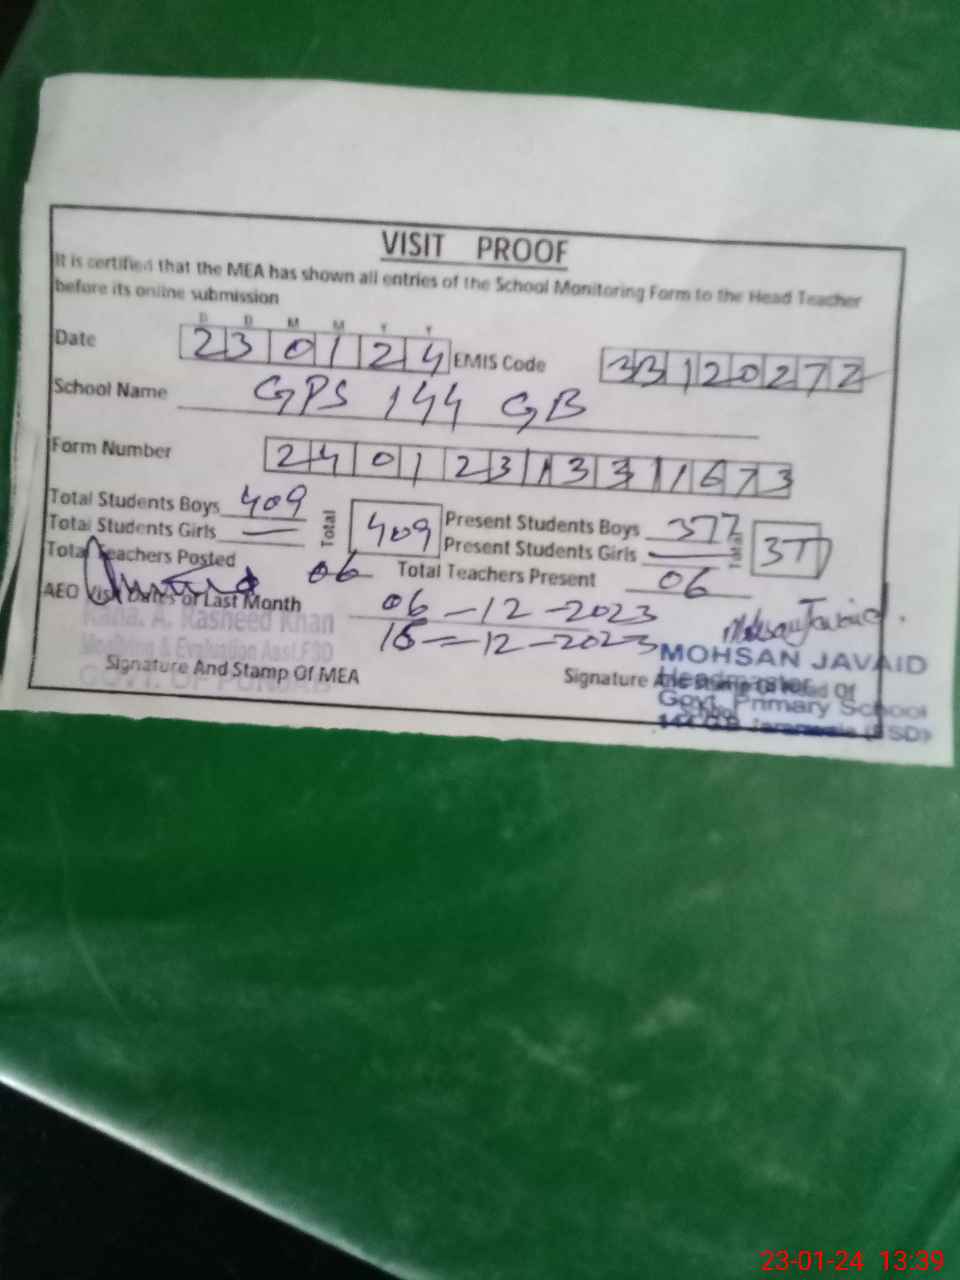 VISIT PROOF
It is certified that the MEA has shown all entries of the School Monitoring Form to the Head Teacher
before its online submission
D D M M Y Y
Date 23 01 24 EMIS Code 33120272
School Name GPS 144 GB
Form Number 2401231331673
Total Students Boys 409 Total 409 Present Students Boys 377 Total
Total Students Girls — Present Students Girls —
Total Teachers Posted 06 Total Teachers Present 06
AEO Visit Dates of Last Month 06-12-2023
Rana. A. Rasheed Khan 15-12-2023
MOHSAN JAVAID
Signature And Stamp Of MEA
Signature And Stamp Of Head Of
Headmaster
Govt. Primary School
GOVT. OF PUNJAB
23-01-24 13:39